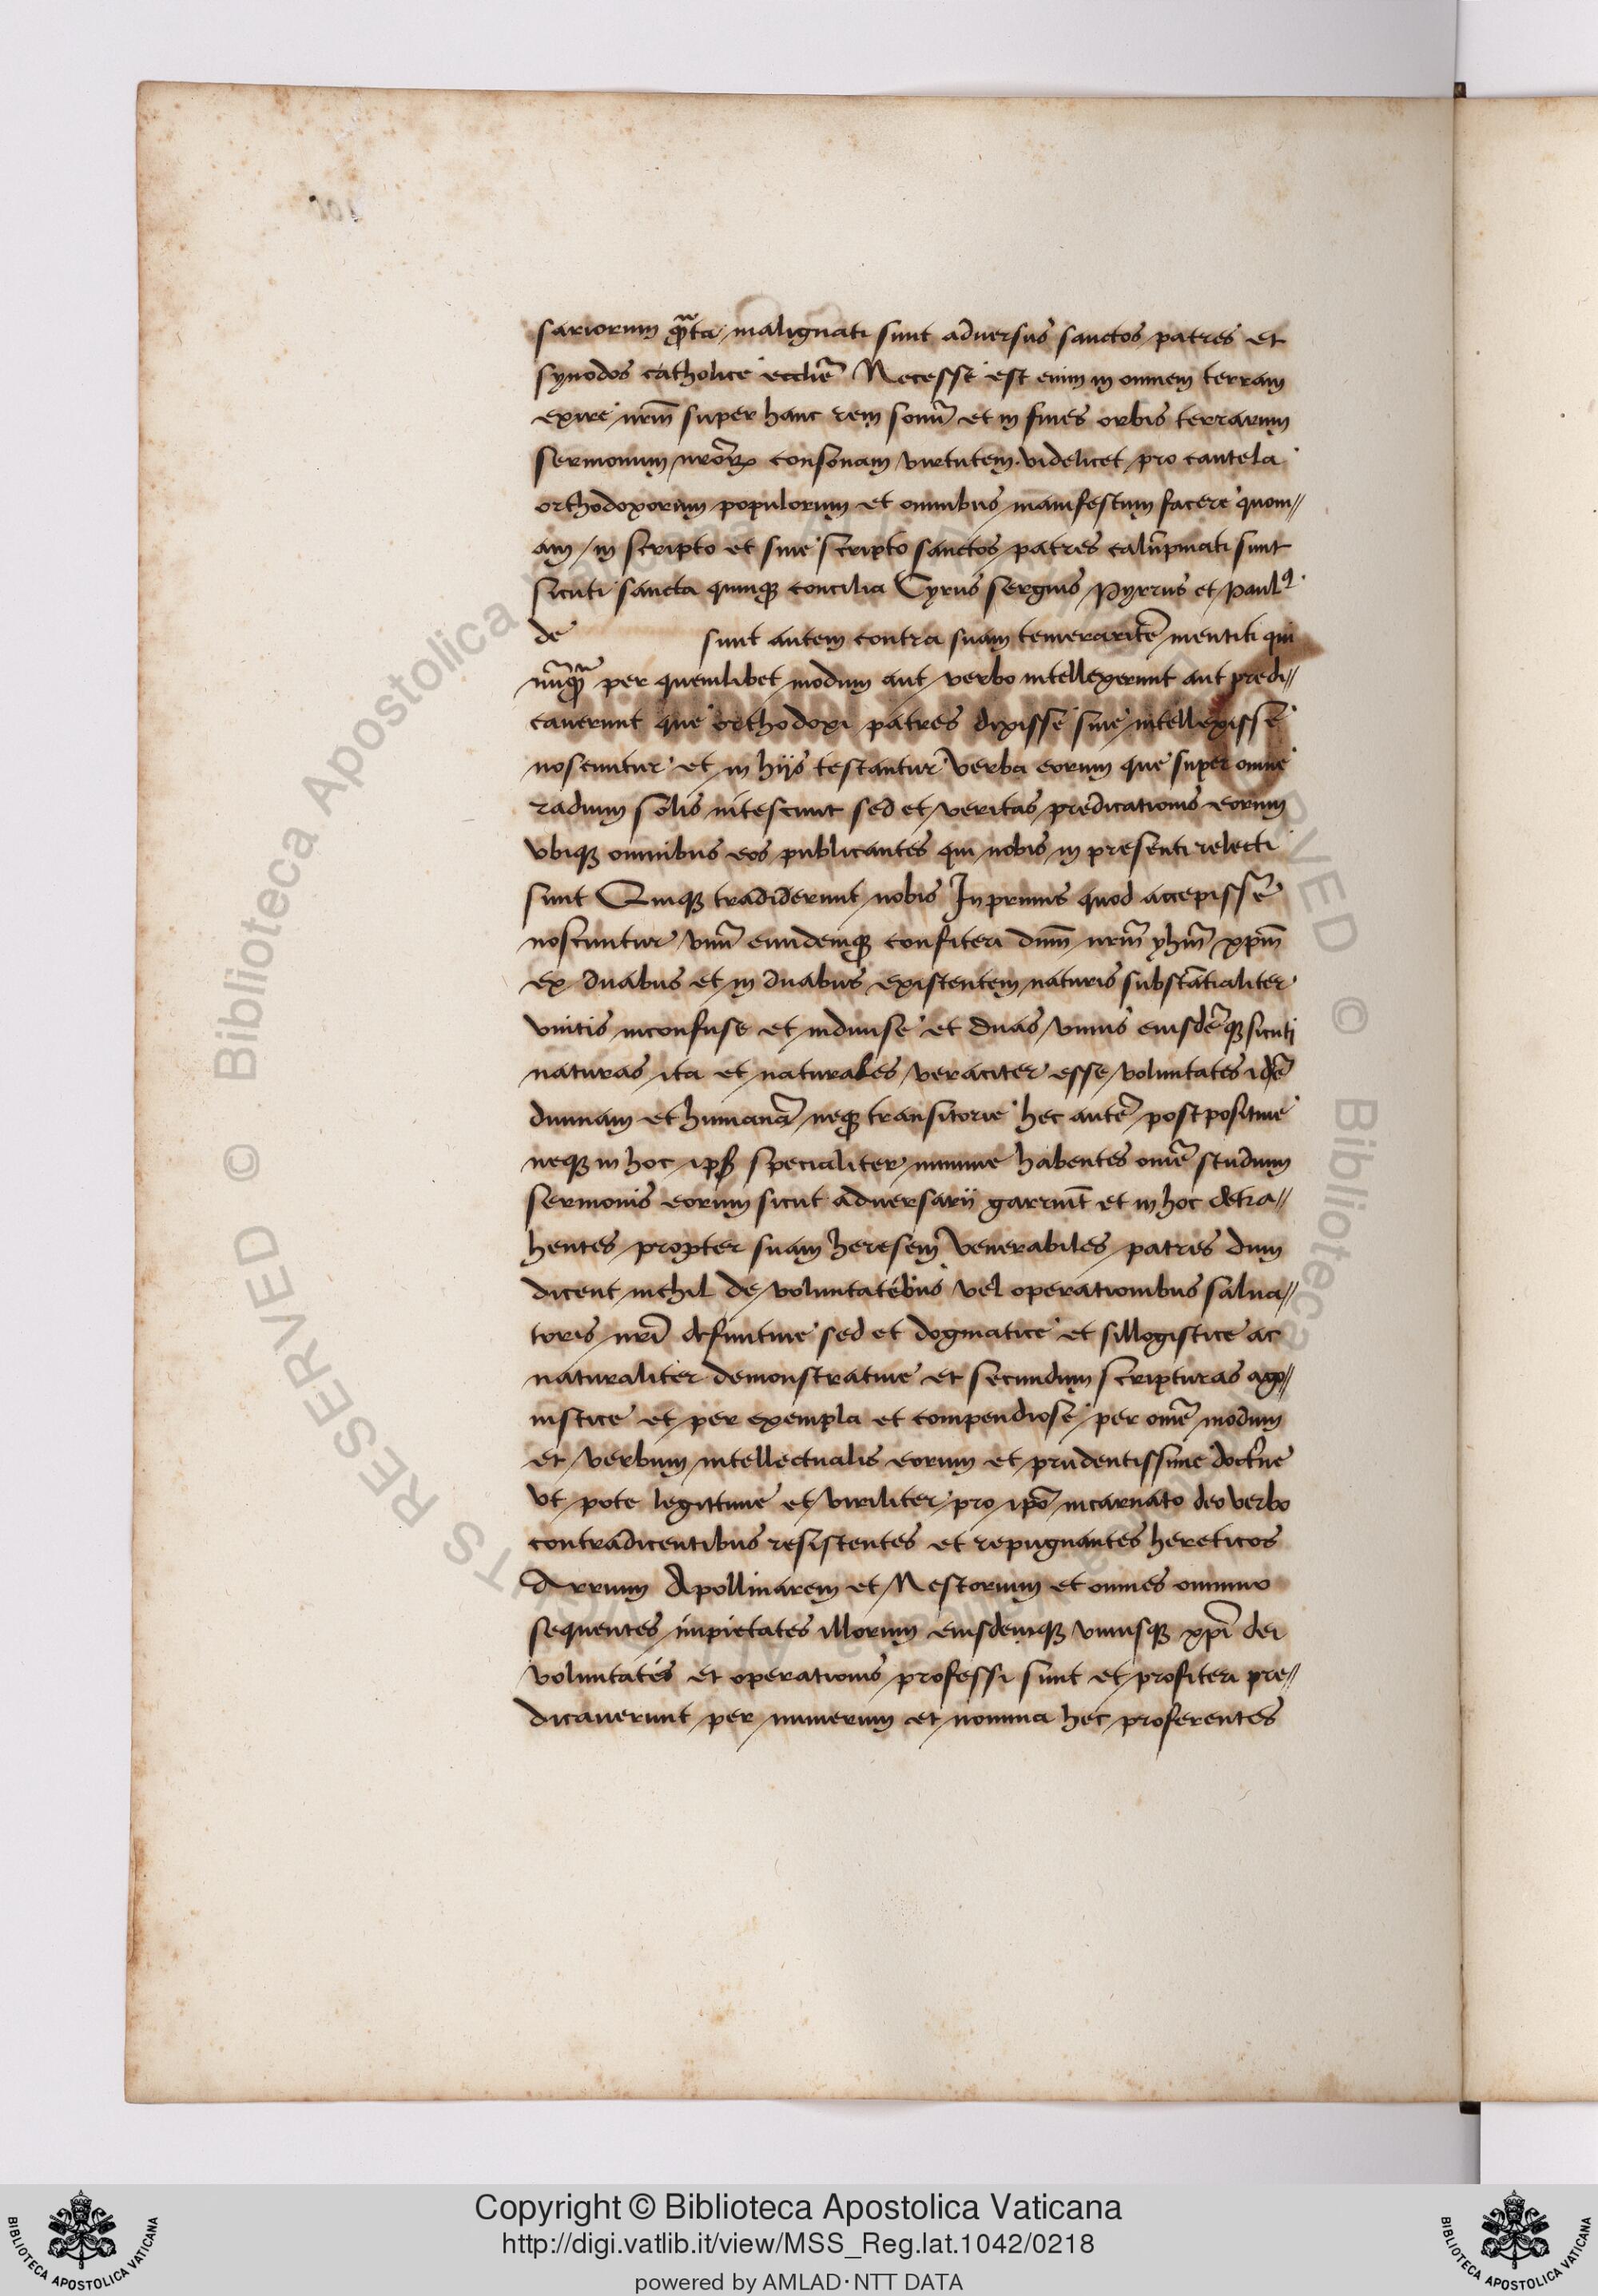 sariorum q̃ta malignati sunt aduersus sanctos patres et
synodos catholice eccliẽ Necesse est enim in omnem terram
exire nr̃m super hanc rem sonũ et in fines orbis terrarum
sermonum nrõꝝ consonam virtutem. videlicet pro cautela
orthodoxorum populorum et omnibus manifestum facere quoni//
am in scripto et sine scripto sanctos patres calũpniati sunt
sicuti sancta quinqꝫ concilia Cyrus sergius Pyrrus et Paulꝰ
de sunt autem contra suam temeraritẽ mentiti qui
nũqꝫ per quemlibet modum aut verbo intellexerunt aut predi//
cauerunt que orthodoxi patres dixisse siue intellexisse
noscuntur et in hijs testantur verba eorum que super omne
radium solis nitescunt sed et veritas predicationis eorum
vbiqꝫ omnibus eos publicantes qui nobis in presenti relecti
sunt Quiqꝫ tradiderunt nobis Inprimis quod accepissẽ
noscuntur vnũ eundemqꝫ confiteri dñm nr̃m yhm̃ xp̃m
ex duabus et in duabus existentem naturis substãtialiter
vnitis inconfuse et indiuise et duas vnius eiusdẽqꝫ sicuti
naturas ita et naturales veraciter esse voluntates idẽ
diuinam et humanã neqꝫ transitorie hec autẽ postpositiue
neqꝫ in hoc ip̃ specialiter minime habentes om̃e studium
sermonis eorum sicut aduersarij garriũt et in hoc detra//
hentes propter suam heresem venerabiles patres dum
dicent nichil de voluntatebus vel operationibus salua//
toris nr̃i definitiue sed et dogmatice et sillogistice ac
naturaliter demonstratiue et secundum scripturas ago//
nistice et per exempla et compendiose per om̃e modum
et verbum intellectualis eorum et prudentissime doctr̃ne
vt pote legittime et viriliter pro ip̃o incarnato deo verbo
contradicentibus resistentes et repugnantes hereticos
Arrium Apollinarem et Nestorium et omnes omnino
sequentes impietates illorum eiusdemqꝫ vniusqꝫ xp̃i dei
voluntates et operationis professi sunt et profiteri pre//
dicauerunt per numerum et nomina hec proferentes
Copyright © Biblioteca Apostolica Vaticana
http://digi.vatlib.it/view/MSS_Reg.lat.1042/0218
powered by AMLAD·NTT DATA